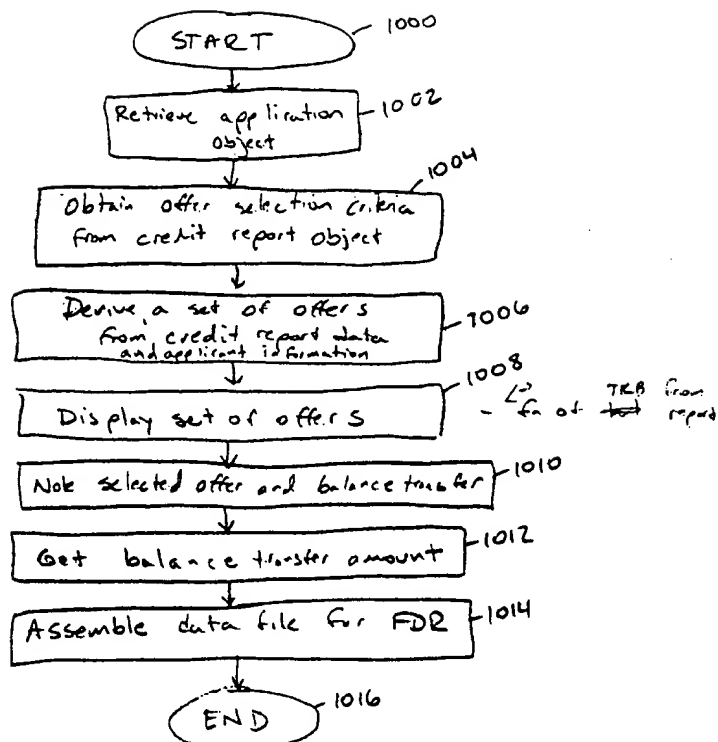 START
1000
Retrieve application
object
1002
Obtain offer selection criteria
from credit report object
1004
Derive a set of offers
from credit report data
and applicant information
1006
Display set of offers
1008
- fn of TRB from
report
Note selected offer and balance transfer
1010
Get balance transfer amount
1012
Assemble data file for FDR
1014
END
1016